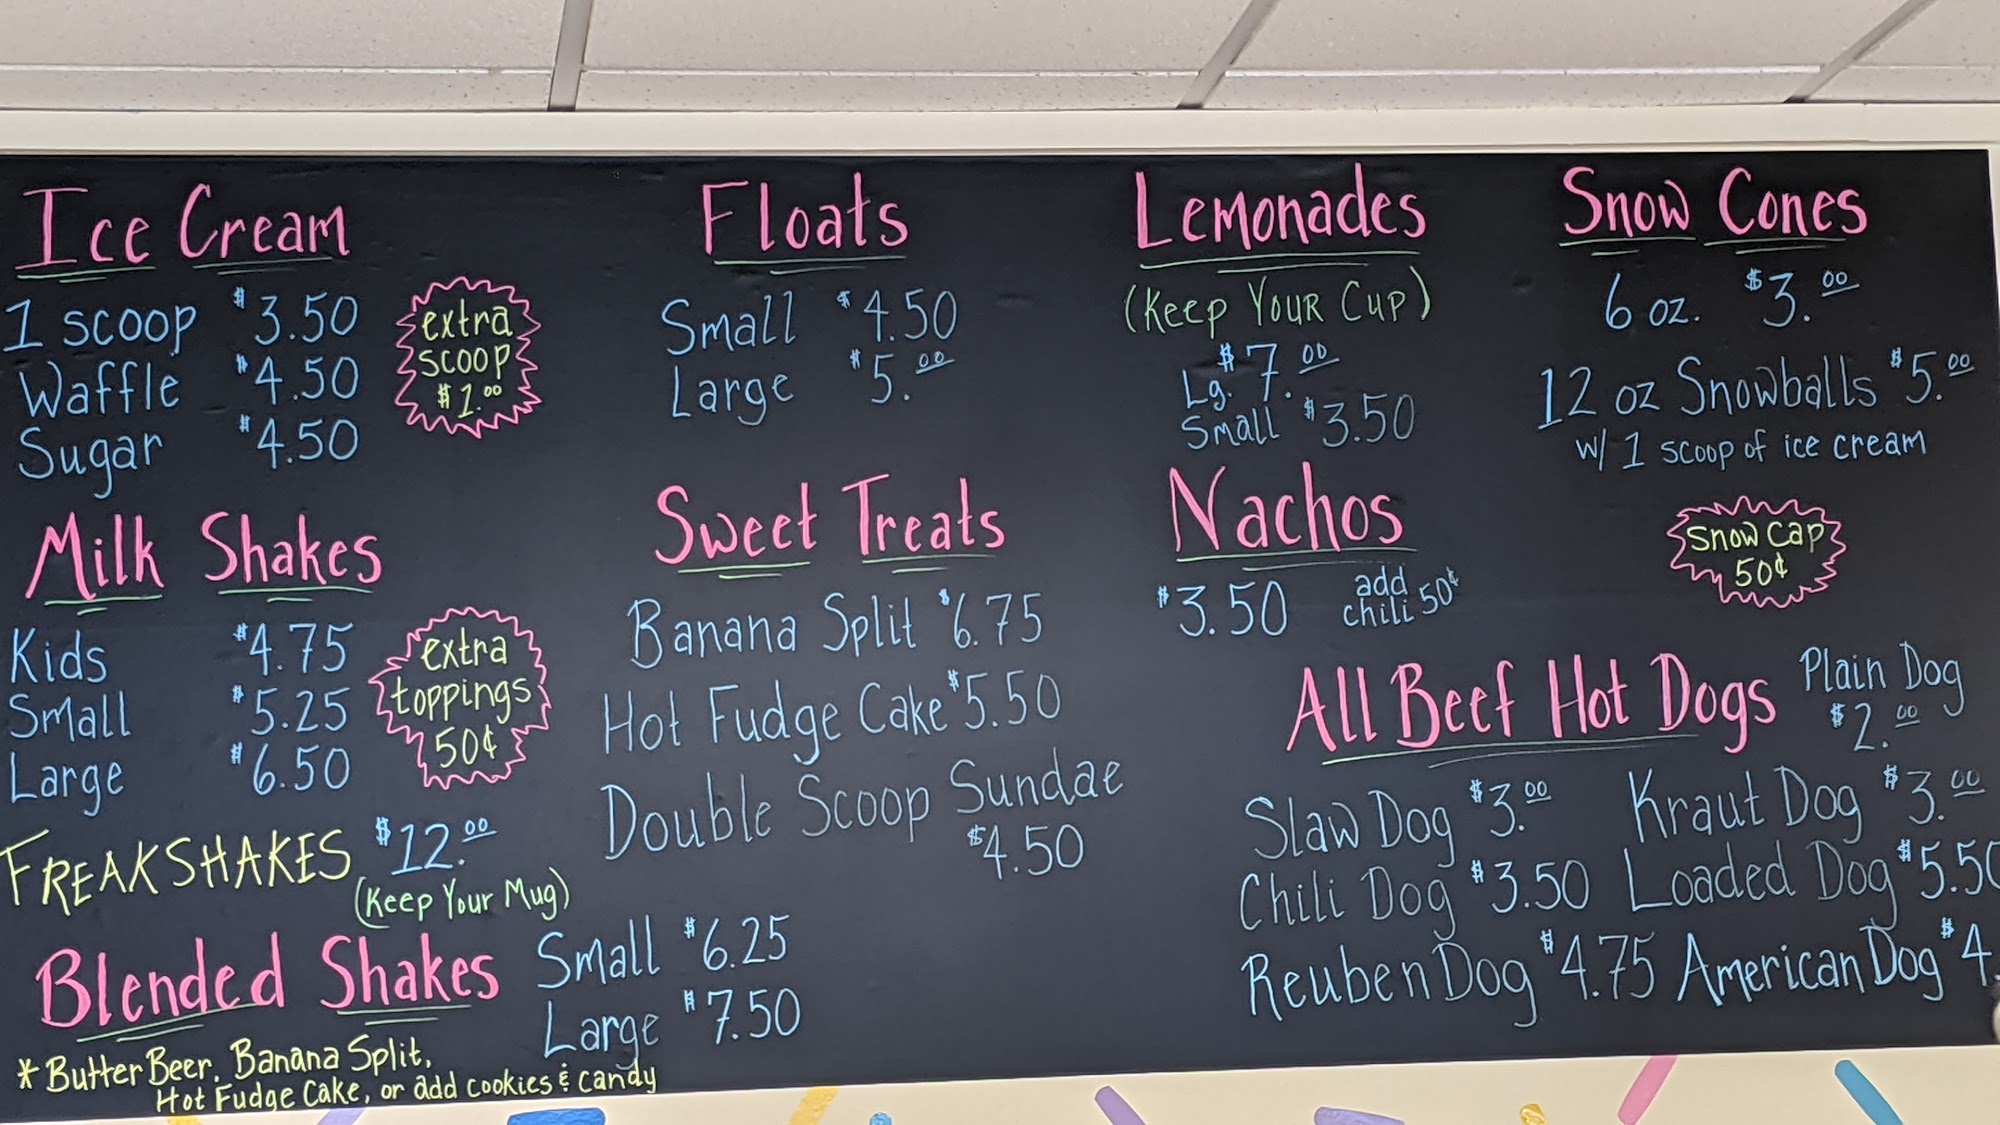 Ice Cream
1 scoop $3.50
Waffle $4.50
Sugar $4.50
extra
scoop
$1.00
Milk Shakes
Kids $4.75
Small $5.25
Large $6.50
extra
toppings
50¢
FREAKSHAKES $12.00
(Keep Your Mug)
Blended Shakes
Small $6.25
Large $7.50
*Butter Beer, Banana Split,
Hot Fudge Cake, or add cookies & candy
Floats
Small $4.50
Large $5.00
Sweet Treats
Banana Split $6.75
Hot Fudge Cake $5.50
Double Scoop Sundae
$4.50
Lemonades
(Keep Your Cup)
Lg. $7.00
Small $3.50
Nachos
$3.50 add chili 50¢
Snow Cones
6 oz. $3.00
12 oz Snowballs $5.00
w/ 1 scoop of ice cream
Snow cap
50¢
All Beef Hot Dogs
Plain Dog
$2.00
Slaw Dog $3.00 Kraut Dog $3.00
Chili Dog $3.50 Loaded Dog $5.50
Reuben Dog $4.75 American Dog $4.